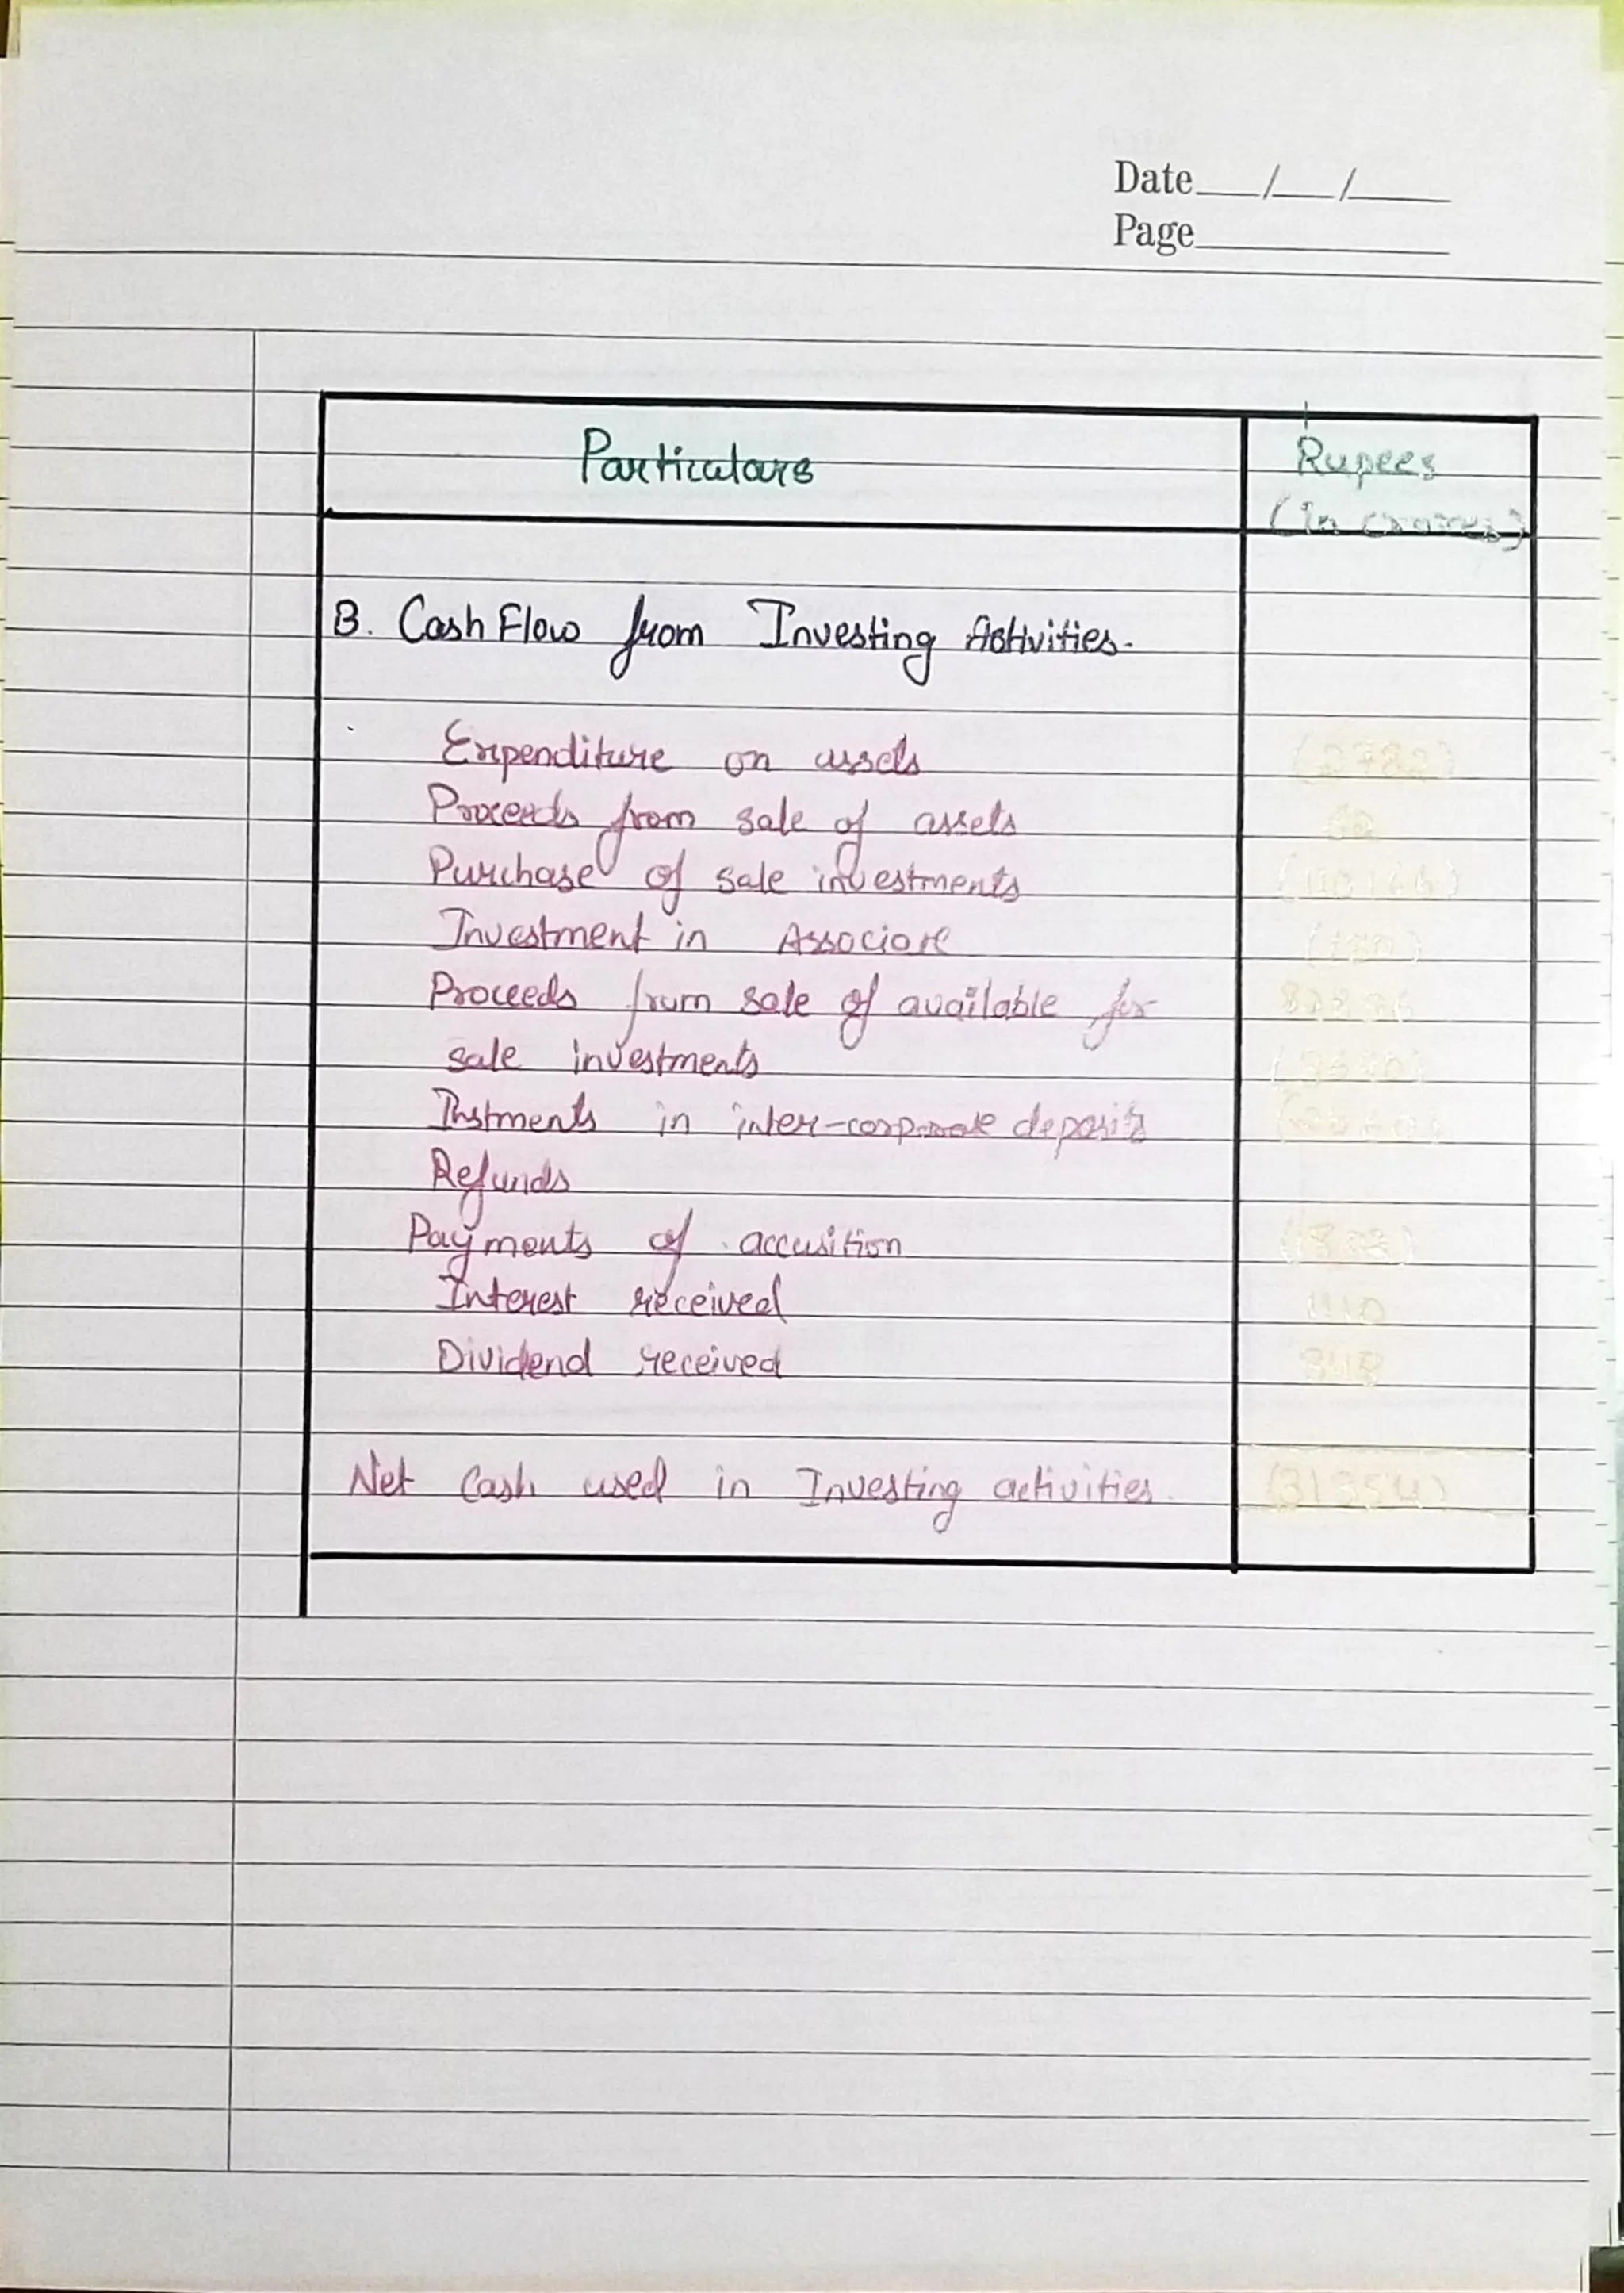 Date___/___/_____
Page__________
Particulars Rupees
(In
B. Cash Flow from Investing Activities.
Expenditure on assets (2782)
Proceeds from sale of assets
Purchase of sale investments
Investment in Associate
Proceeds from sale of available for
sale investments
Instments in inter-corporate deposits
Refunds
Payments of accusition
Interest received 1110
Dividend received 348
Net Cash used in Investing activities. (31354)